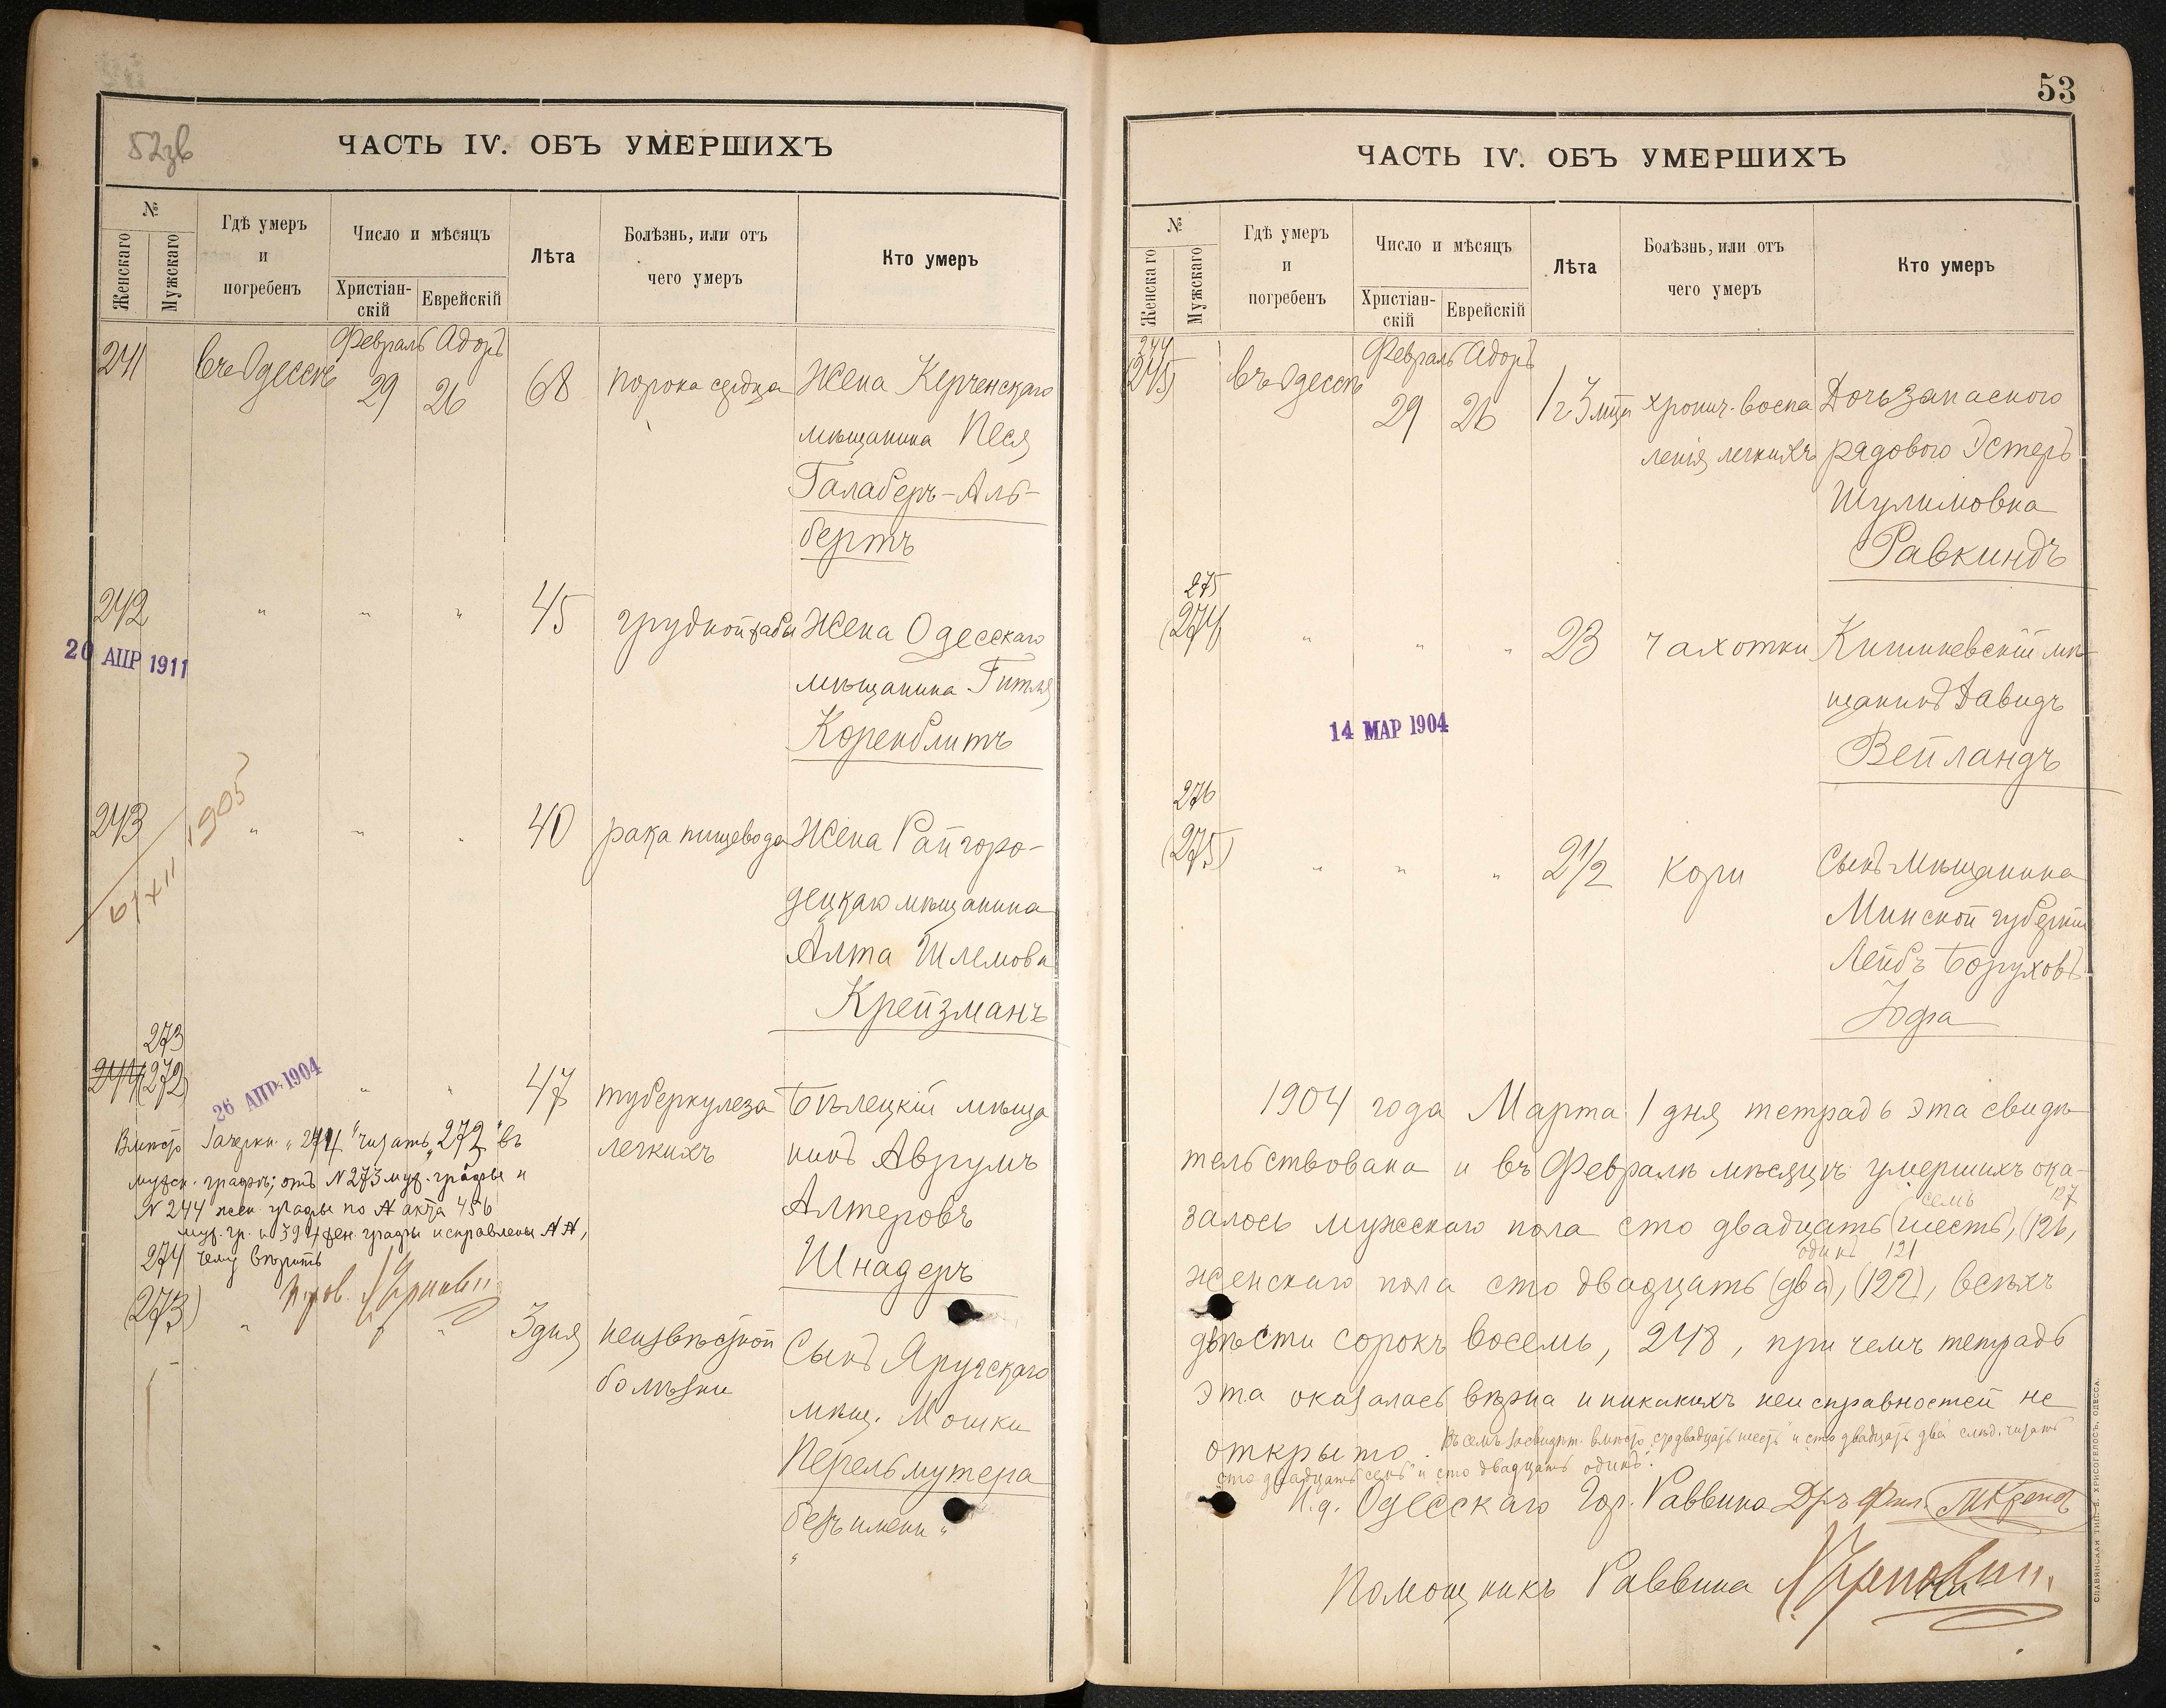 52зв
ЧАСТЬ IV. ОБЪ УМЕРШИХЪ
№
Женскаго
Мужскаго
Гдѣ умеръ
и
погребенъ
Число и мѣсяцъ
Христіан-
скій
Еврейскій
Лѣта
Болѣзнь, или отъ
чего умеръ
Кто умеръ
Февраль Адоръ
241 въ Одессѣ 29 26 68 порока сердца Жена Керченскаго
мѣщанина Песя
Галаберъ-Аль-
бертъ
242 " " " 45 грудной жабы Жена Одесскаго
20 АПР 1911
мѣщанина Гитля
Коренблитъ
1905
243 " " " 40 рака пищевода Жена Райгоро-
6/XII
децкаго мѣщанина
Алта Шлемова
Крейзманъ
273
244 (272) " " 47 туберкулеза Бѣлецкій мѣща
26 АПР 1904
легкихъ нинъ Аврумъ
Алтеровъ
Шнадеръ
Вмѣсто зачеркн. "244" читать "272" въ
мужск. графѣ; отъ № 273 муж. графы и
№ 244 жен. графы по № акта 456
муж. гр. и 394 жен. графы исправлены №№,
чему вѣрить
274
(273) " " 3 дня неизвѣстной Сынъ Яругскаго
болѣзни мѣщ. Мошки
Перельмутера
безъ имени "
"
53
ЧАСТЬ IV. ОБЪ УМЕРШИХЪ
№
Женскаго
Мужскаго
Гдѣ умеръ
и
погребенъ
Число и мѣсяцъ
Христіан-
скій
Еврейскій
Лѣта
Болѣзнь, или отъ
чего умеръ
Кто умеръ
Февраль Адоръ
244
(245) въ Одессѣ 29 26 1 г 3 мца хронич. воспа Дочь запаснаго
ленія легкихъ рядового Эстеръ
Шулимовна
Равкиндъ
275
(274) " " " 23 чахотки Кишиневскій мѣ-
щанинъ Давидъ
14 МАР 1904
Вейландъ
276
(275) " " " 2 1/2 кори Сынъ мѣщанина
Минской губерніи
Лейбъ Боруховъ
Іофа
1904 года Марта 1 дня тетрадь эта свидѣ
тельствована и въ Февралѣ мѣсяцѣ умершихъ ока-
семь 127
залось мужскаго пола сто двадцать (шесть), (126,
одинъ 121
женскаго пола сто двадцать (два), (122), всѣхъ
двѣсти сорокъ восемь, 248, при чемъ тетрадь
эта оказалась вѣрна и никакихъ неисправностей не
открыто. Въ семъ засвидѣт. вмѣсто "сто двадцать шесть" и "сто двадцать два" слѣд. читать
"сто двадцать семь" и "сто двадцать одинъ".
И.д. Одесскаго Гор. Раввина Дръ Фил.
Помощникъ Раввина
СЛАВЯНСКАЯ ТИП. Е. ХРИСОГЕЛОСЪ, ОДЕССА.